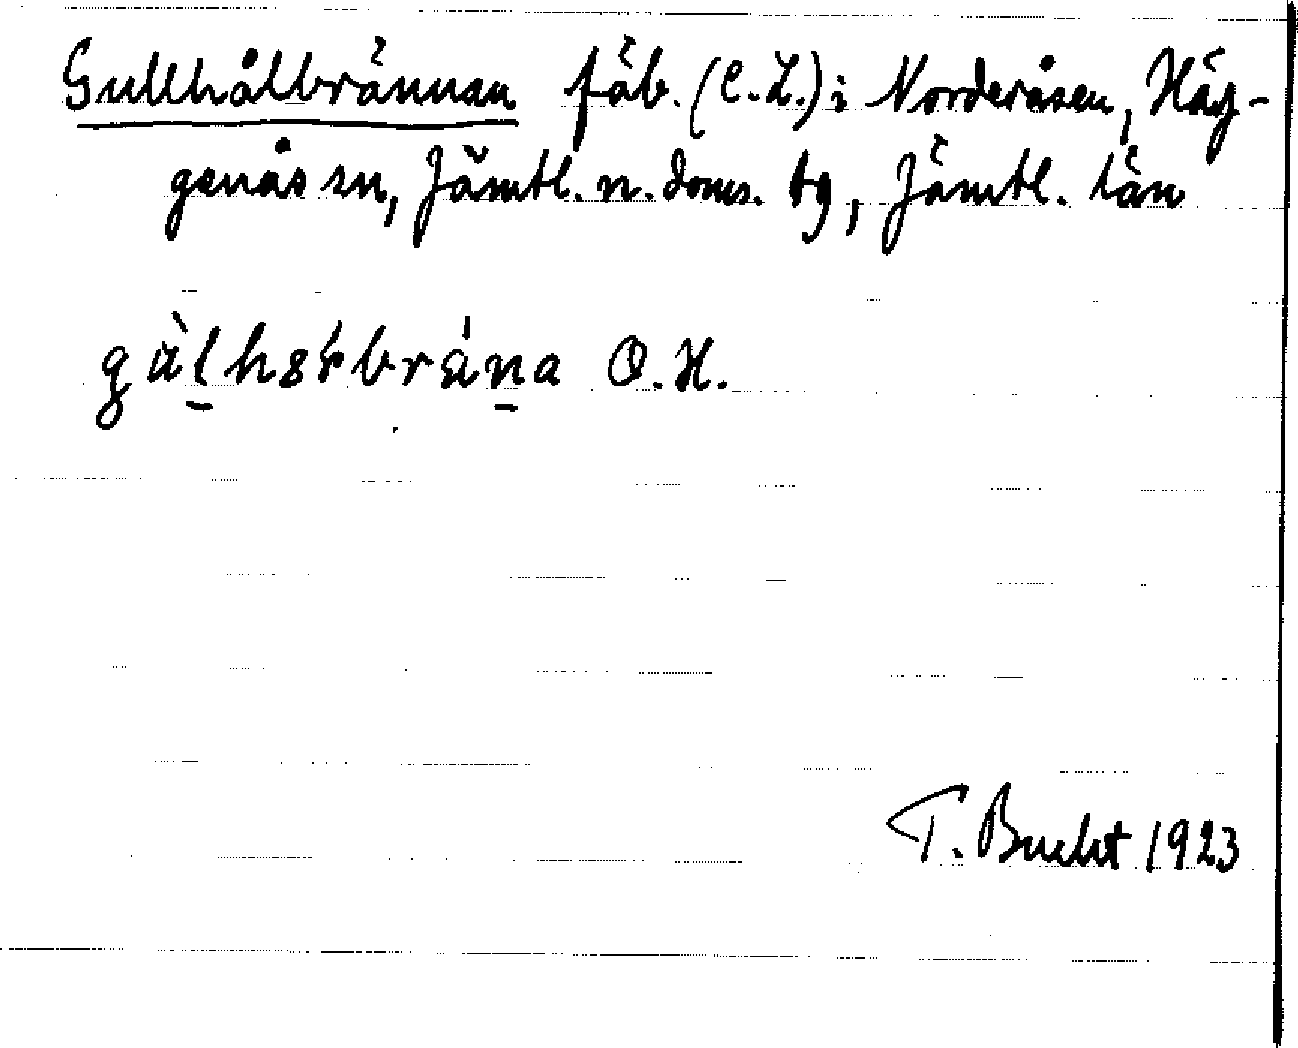 Gullhålbrännan fäb. (C.Z.) i Norderåsen, Häg-
genås sn, Jämtl. n. doms. tg, Jämtl. län
O.H.
T. Bucht 1923